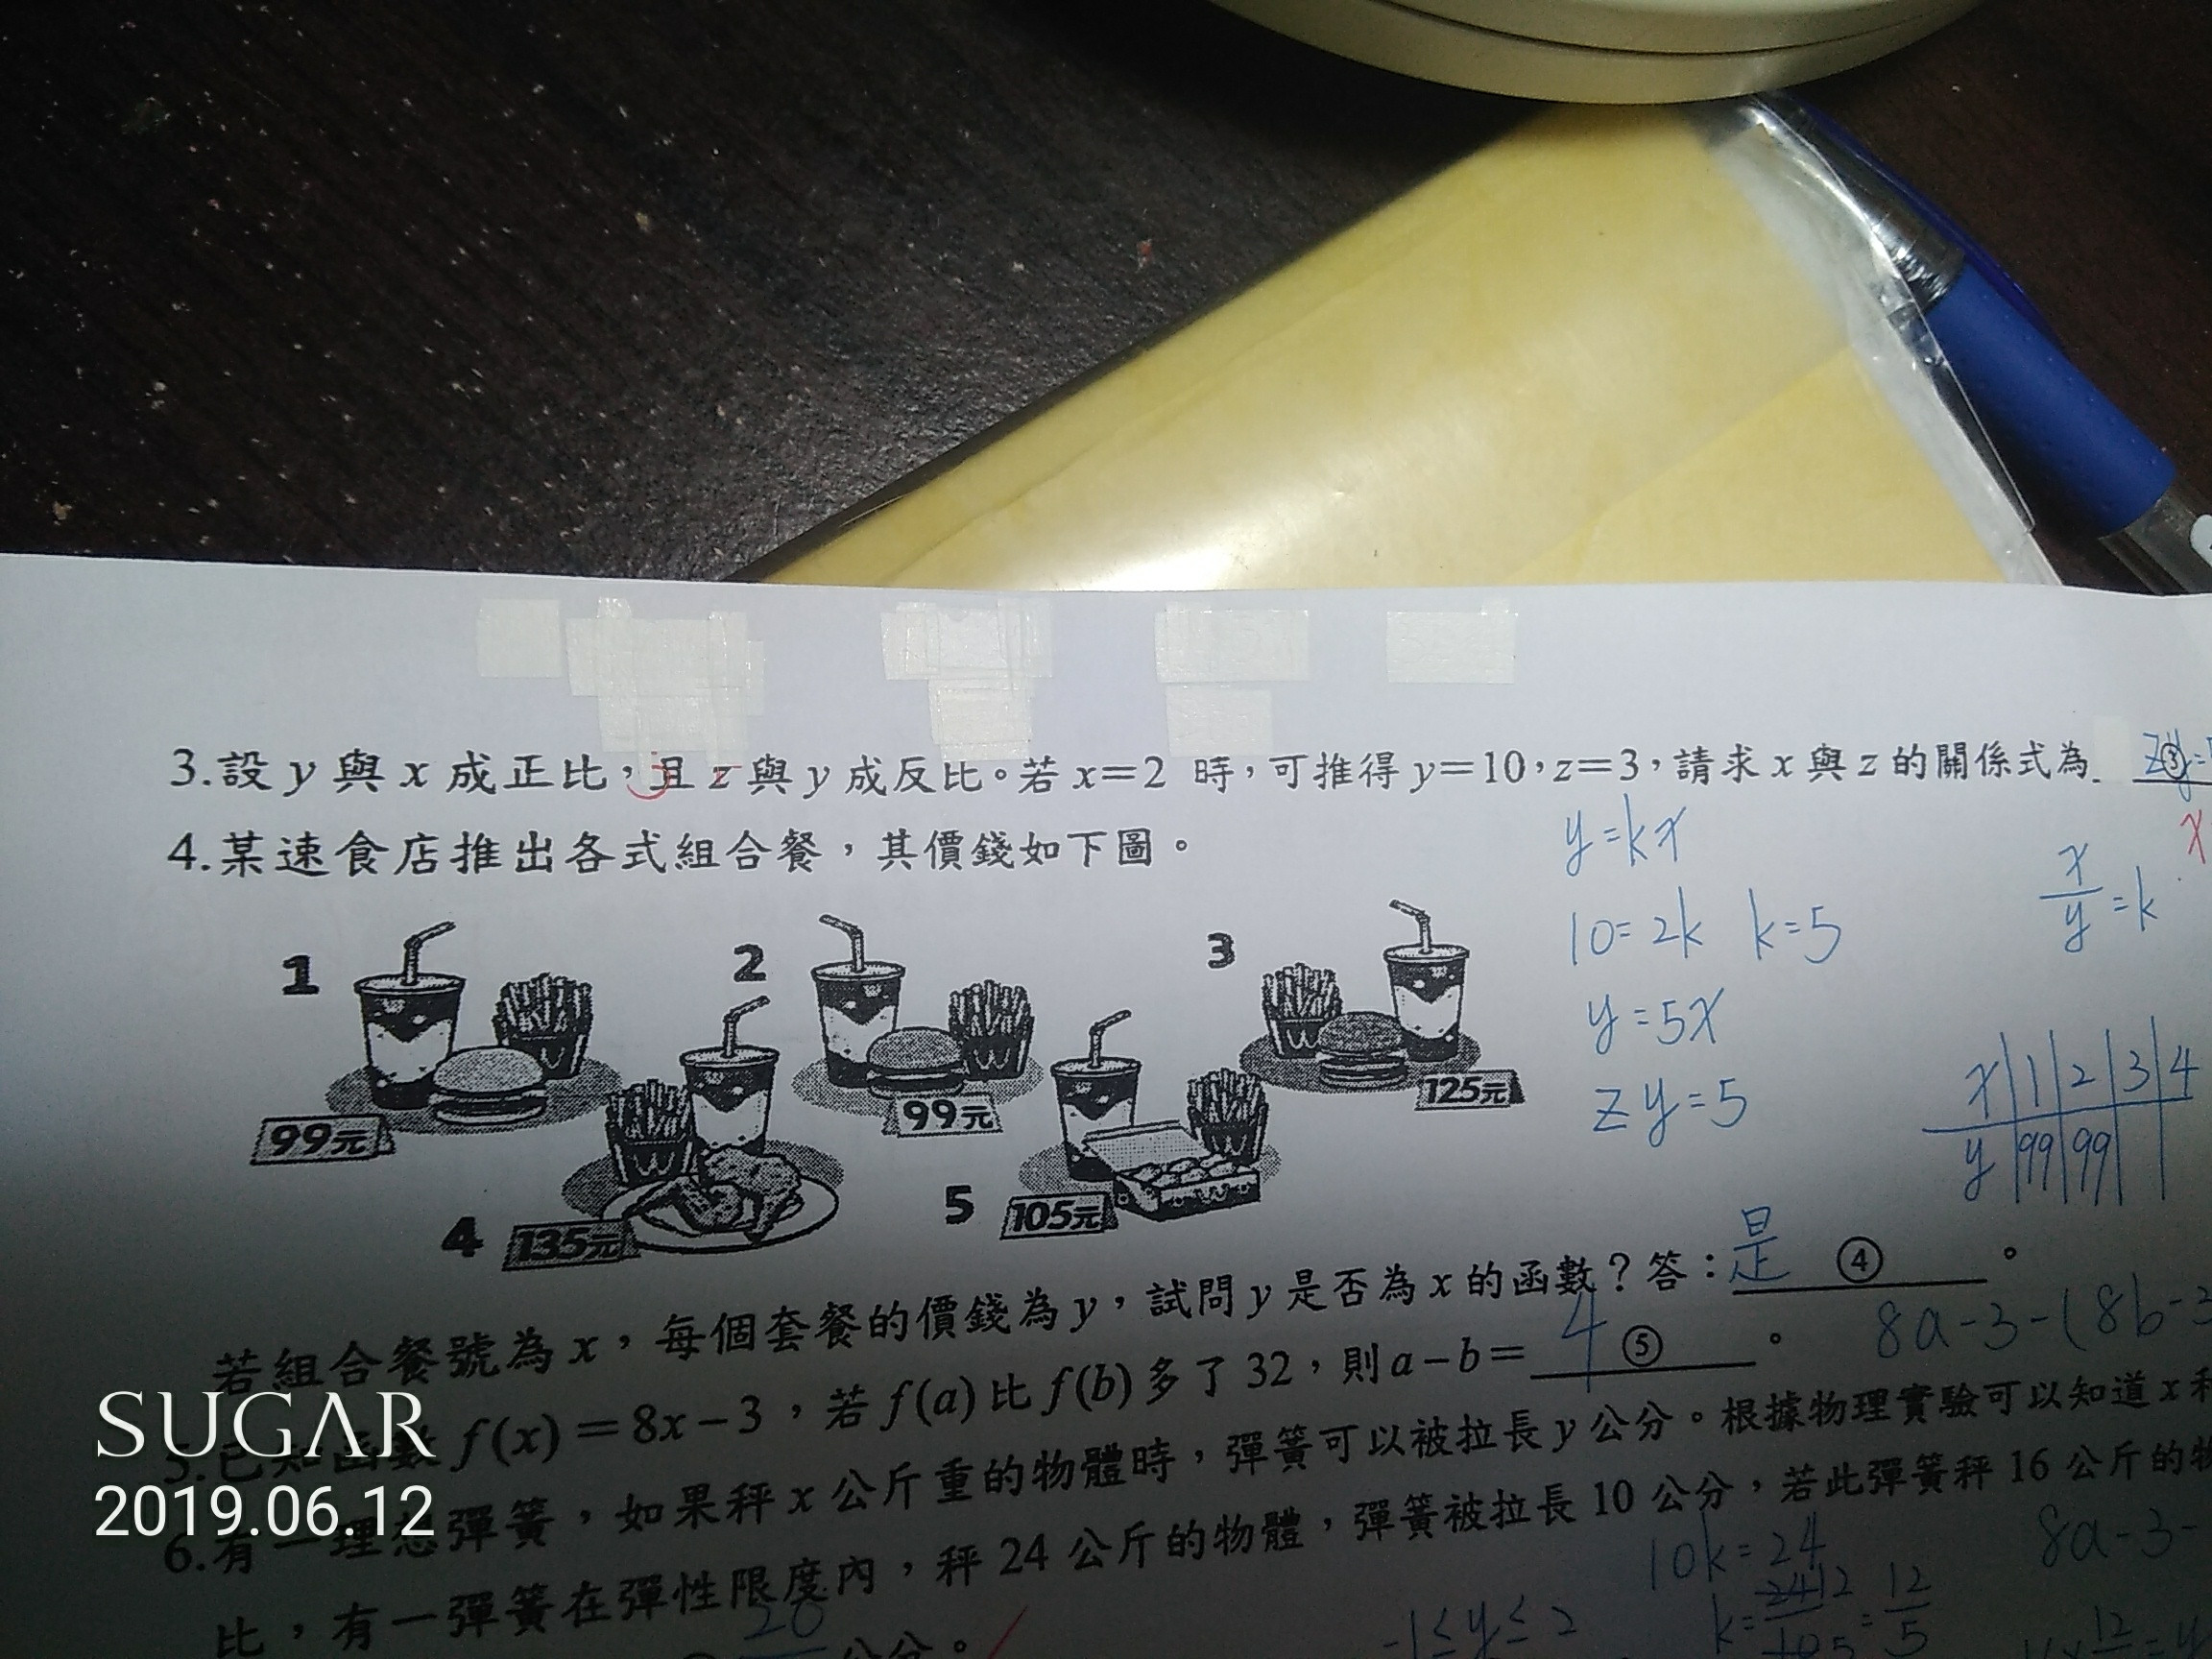 3.設 y 與 x 成正比，且 z 與 y 成反比。若 x=2 時，可推得 y=10，z=3，請求 x 與 z 的關係式為 ③
4.某速食店推出各式組合餐，其價錢如下圖。
y=kx
x/y=k
10=2k k=5
1
2
3
y=5x
99元
99元
125元
zy=5
x 1 2 3 4
y 99 99
4
135元
5
105元
若組合餐號為 x，每個套餐的價錢為 y，試問 y 是否為 x 的函數？答：是 ④ 。
5.已知函數 f(x)=8x-3，若 f(a) 比 f(b) 多了 32，則 a-b= 4 ⑤ 。
8a-3-(8b-3
6.有一理想彈簧，如果秤 x 公斤重的物體時，彈簧可以被拉長 y 公分。根據物理實驗可以知道 x 和
比，有一彈簧在彈性限度內，秤 24 公斤的物體，彈簧被拉長 10 公分，若此彈簧秤 16 公斤的物
10k=24
8a-3-
20
公分。
-1≤y≤2
SUGAR
2019.06.12